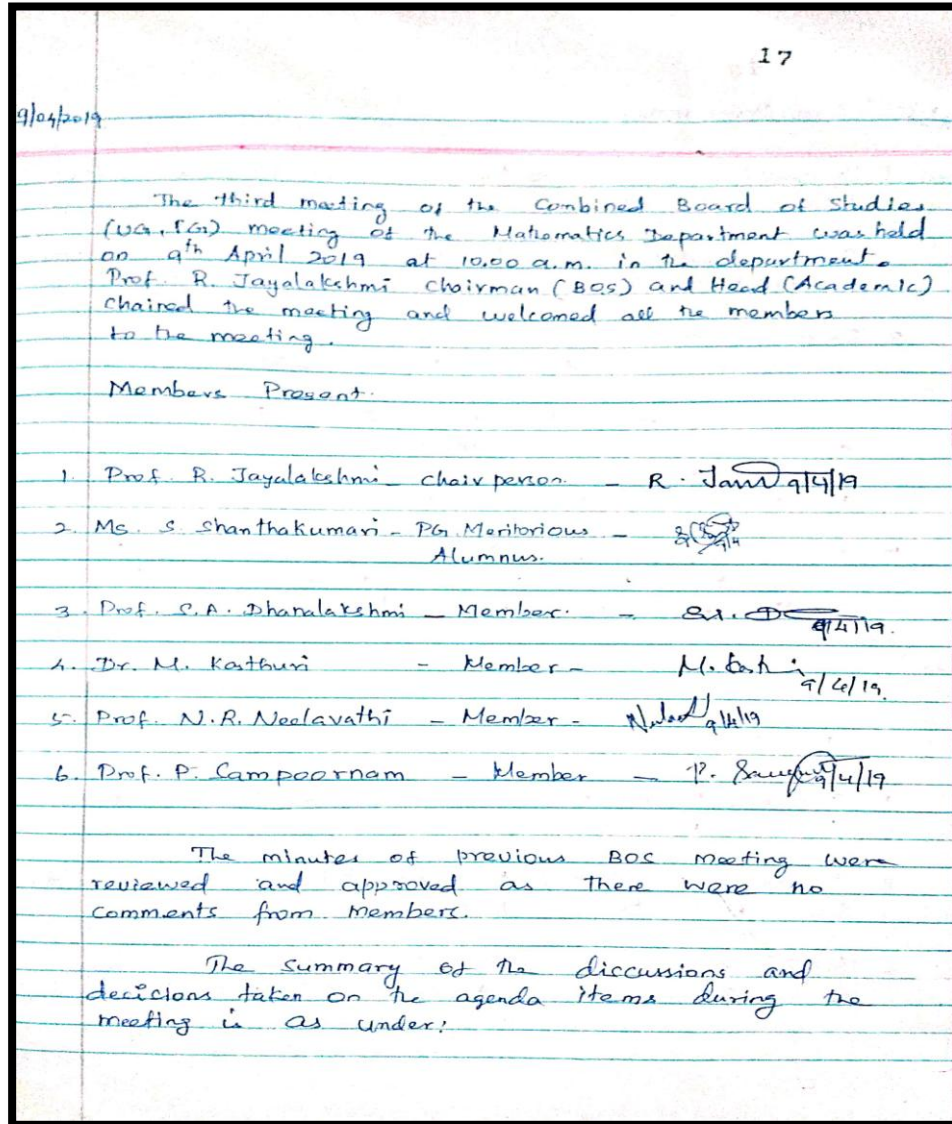 17
9/04/2019
The third meeting of the Combined Board of Studies
(UG, PG) meeting of the Mathematics Department was held
on 9th April 2019 at 10.00 a.m. in the department.
Prof. R. Jayalakshmi Chairman (BOS) and Head (Academic)
chaired the meeting and welcomed all the members
to the meeting.
Members Present.
1. Prof. R. Jayalakshmi - Chair person - R. 9/4/19
2. Ms. S. Shanthakumari - PG Meritorious -
Alumnus.
3. Prof. S.A. Dhanalakshmi - Member. - 9/4/19.
4. Dr. M. Kasthuri - Member - M. 9/4/19
5. Prof. N.R. Neelavathi - Member - 9/4/19
6. Prof. P. Sampoornam - Member - P. 9/4/19
The minutes of previous BOS meeting were
reviewed and approved as there were no
comments from members.
The summary of the discussions and
decisions taken on the agenda items during the
meeting is as under: